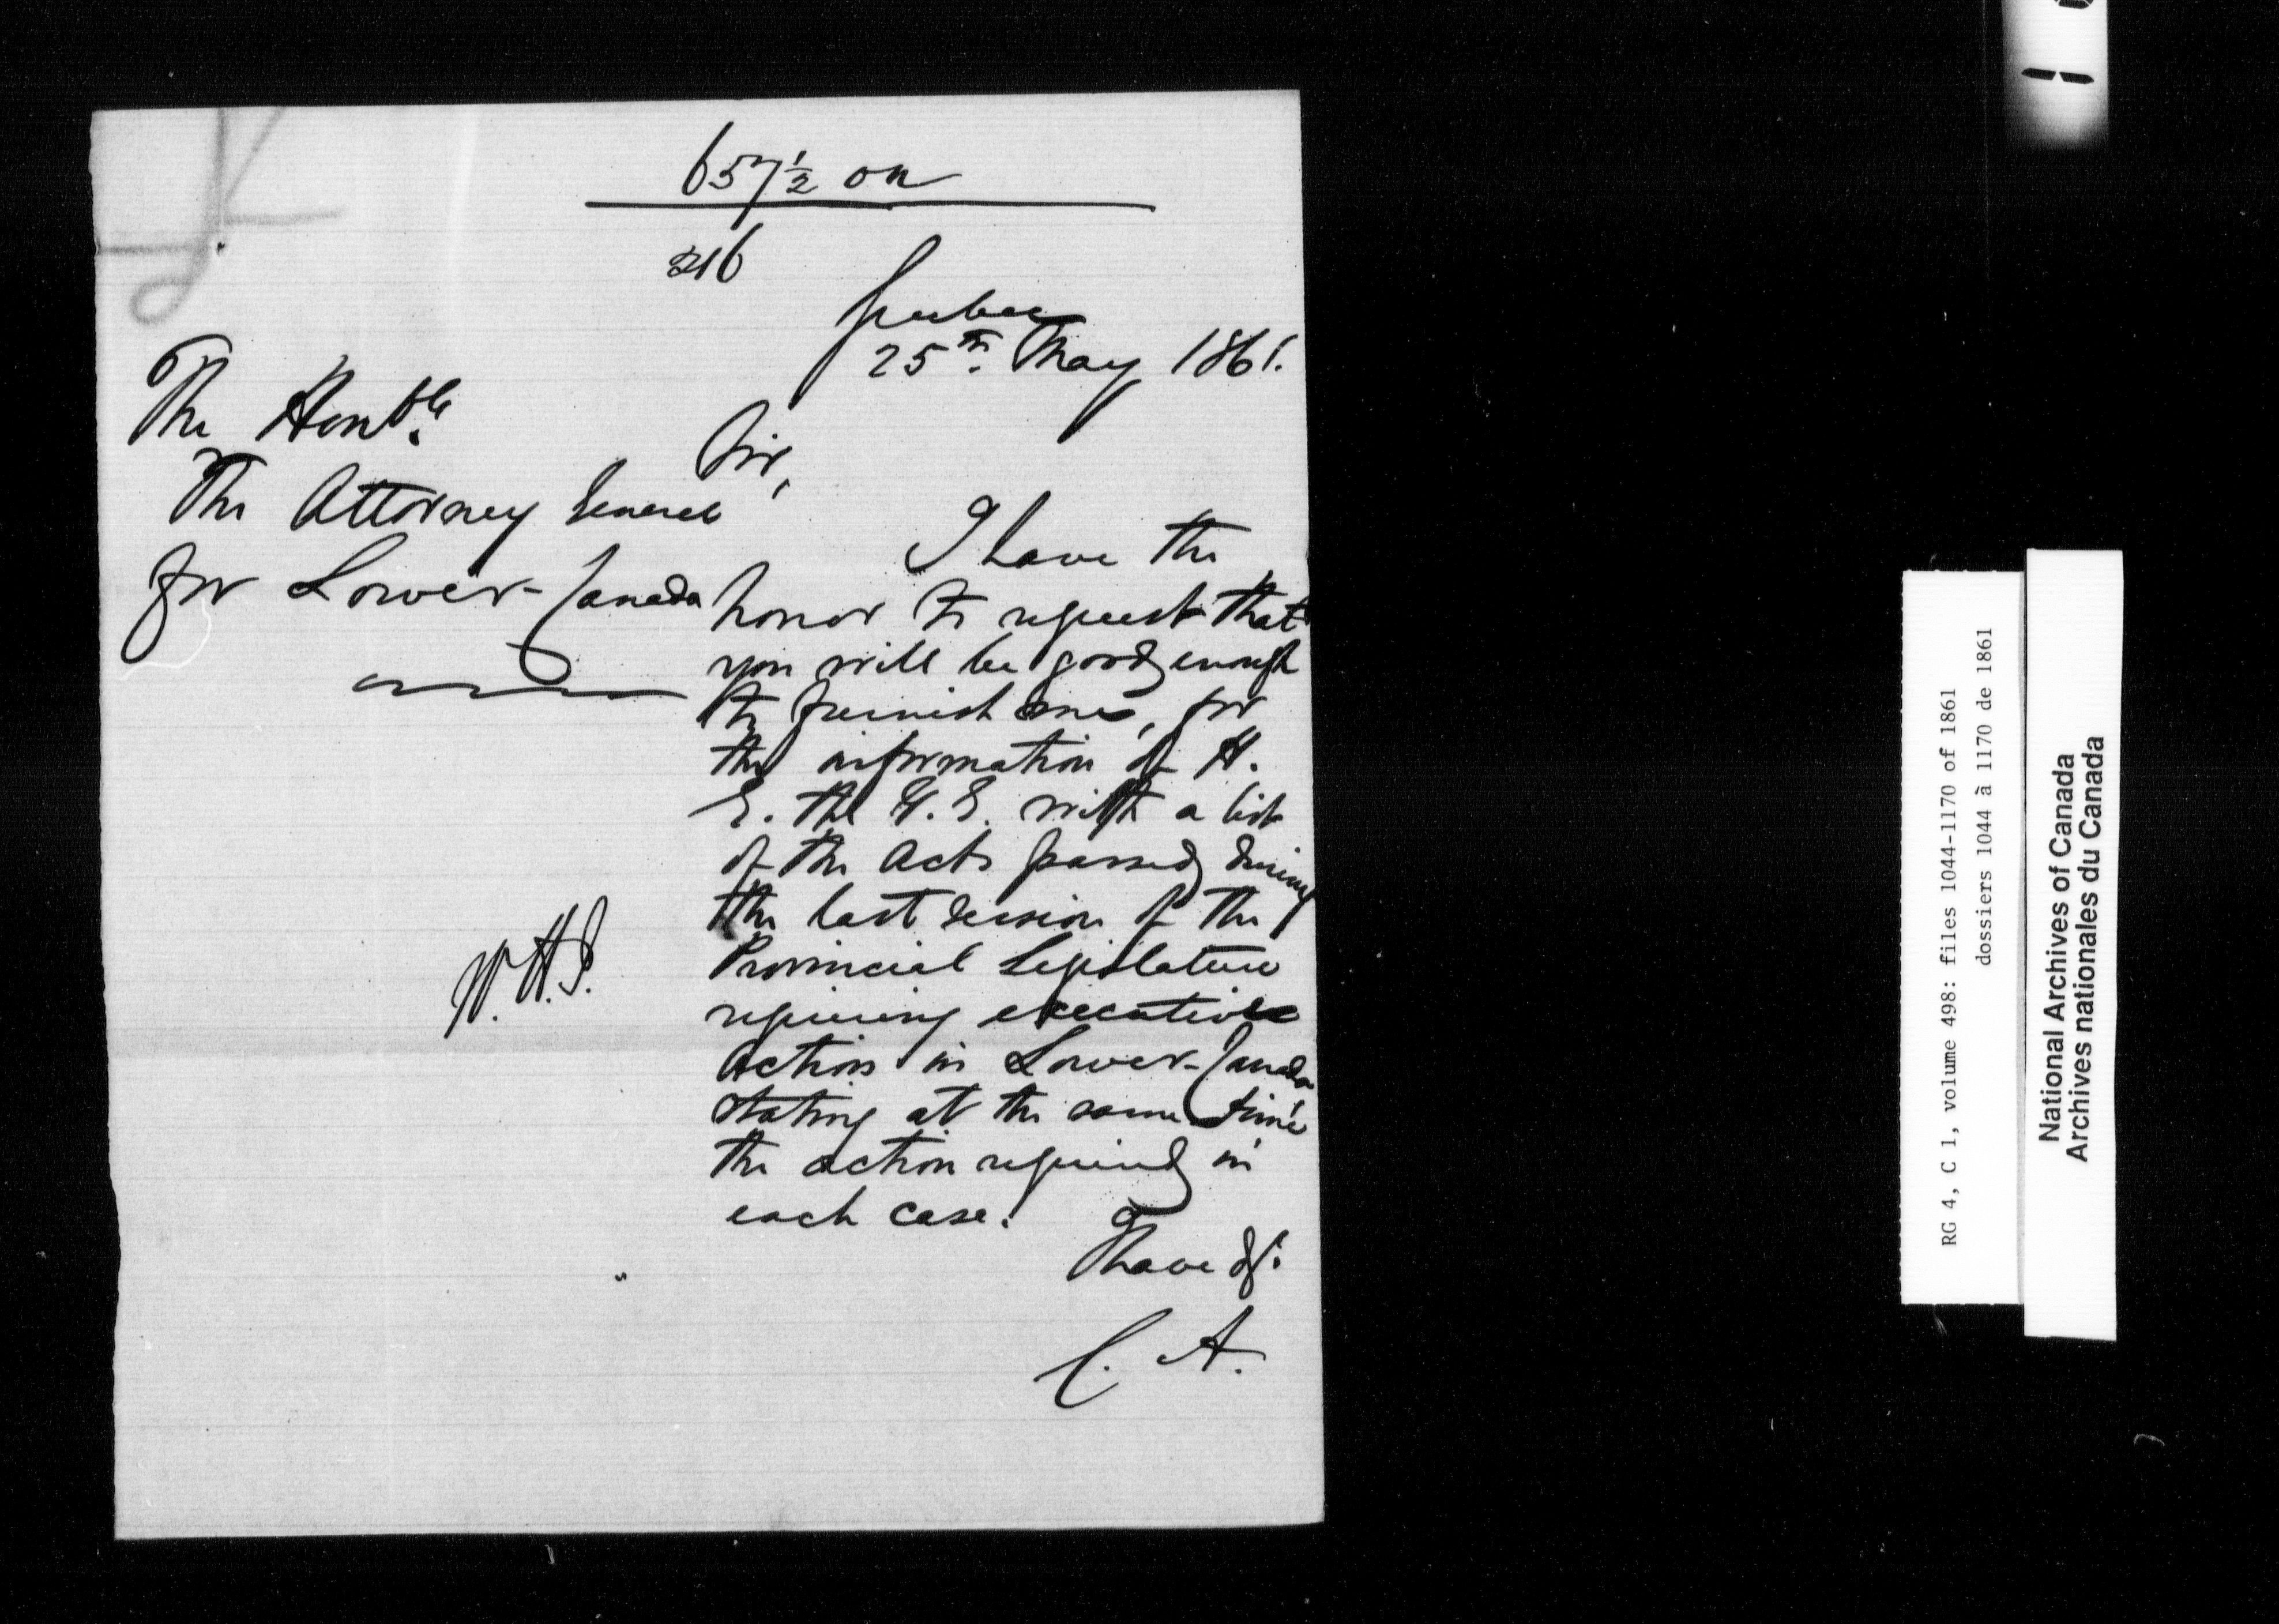 657½ on
216
Quebec
25th. May 1861.
The Honble.
The Attorney General
for Lower-Canada
Sir,
I have the
honor to request that
you will be good enough
to furnish me, for
the information of H.
E. the G. G. with a list
of the Acts passed during
the last session of the
Provincial Legislature
requiring executive
action in Lower-Canada
stating at the same time
the action required in
each case.
I have &c:
C. A.
RG 4, C 1, volume 498: files 1044-1170 of 1861
dossiers 1044 à 1170 de 1861
National Archives of Canada
Archives nationales du Canada